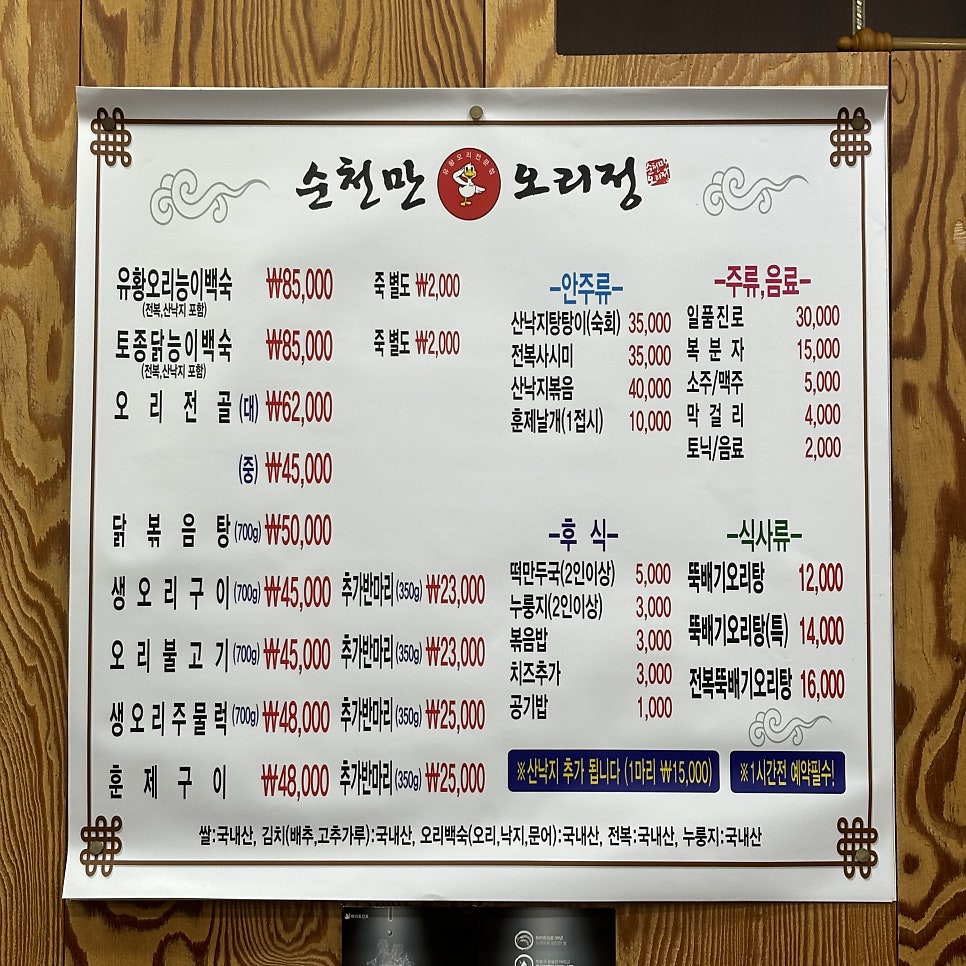 순천만 오리정
유황오리전문점
순천만
오리정
유황오리능이백숙 ₩85,000 죽 별도 ₩2,000
(전복,산낙지 포함)
토종닭능이백숙 ₩85,000 죽 별도 ₩2,000
(전복,산낙지 포함)
오리전골 (대) ₩62,000
(중) ₩45,000
닭볶음탕 (700g) ₩50,000
생오리구이 (700g) ₩45,000 추가반마리 (350g) ₩23,000
오리불고기 (700g) ₩45,000 추가반마리 (350g) ₩23,000
생오리주물럭 (700g) ₩48,000 추가반마리 (350g) ₩25,000
훈제구이 ₩48,000 추가반마리 (350g) ₩25,000
-안주류-
산낙지탕탕이(숙회) 35,000
전복사시미 35,000
산낙지볶음 40,000
훈제날개(1접시) 10,000
-주류,음료-
일품진로 30,000
복분자 15,000
소주/맥주 5,000
막걸리 4,000
토닉/음료 2,000
-후 식-
떡만두국(2인이상) 5,000
누룽지(2인이상) 3,000
볶음밥 3,000
치즈추가 3,000
공기밥 1,000
-식사류-
뚝배기오리탕 12,000
뚝배기오리탕(특) 14,000
전복뚝배기오리탕 16,000
※산낙지 추가 됩니다 (1마리 ₩15,000)
※1시간전 예약필수!
쌀:국내산, 김치(배추,고추가루):국내산, 오리백숙(오리,낙지,문어):국내산, 전복:국내산, 누룽지:국내산